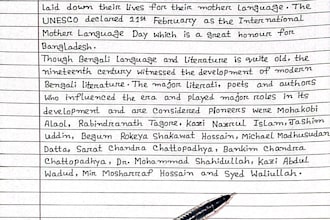 laid down their lives for their mother language. The
UNESCO declared 21st February as the International
Mother Language Day which is a great honour for
Bangladesh.
Though Bengali language and literature is quite old, the
nineteenth century witnessed the development of modern
Bengali literature. The major literati, poets and authors
who influenced the era and played major roles in its
development and are considered pioneers were Mohakobi
Alaol, Rabindranath Tagore, Kazi Nazrul Islam, Jashim
uddin, Begum Rokeya Shakawat Hossain, Michael Madhusudan
Datta, Sarat Chandra Chattopadhya, Bankim Chandra
Chattopadhya, Dr. Mohammad Shahidullah, Kazi Abdul
Wadud, Mir Mosharraf Hossain and Syed Waliullah.